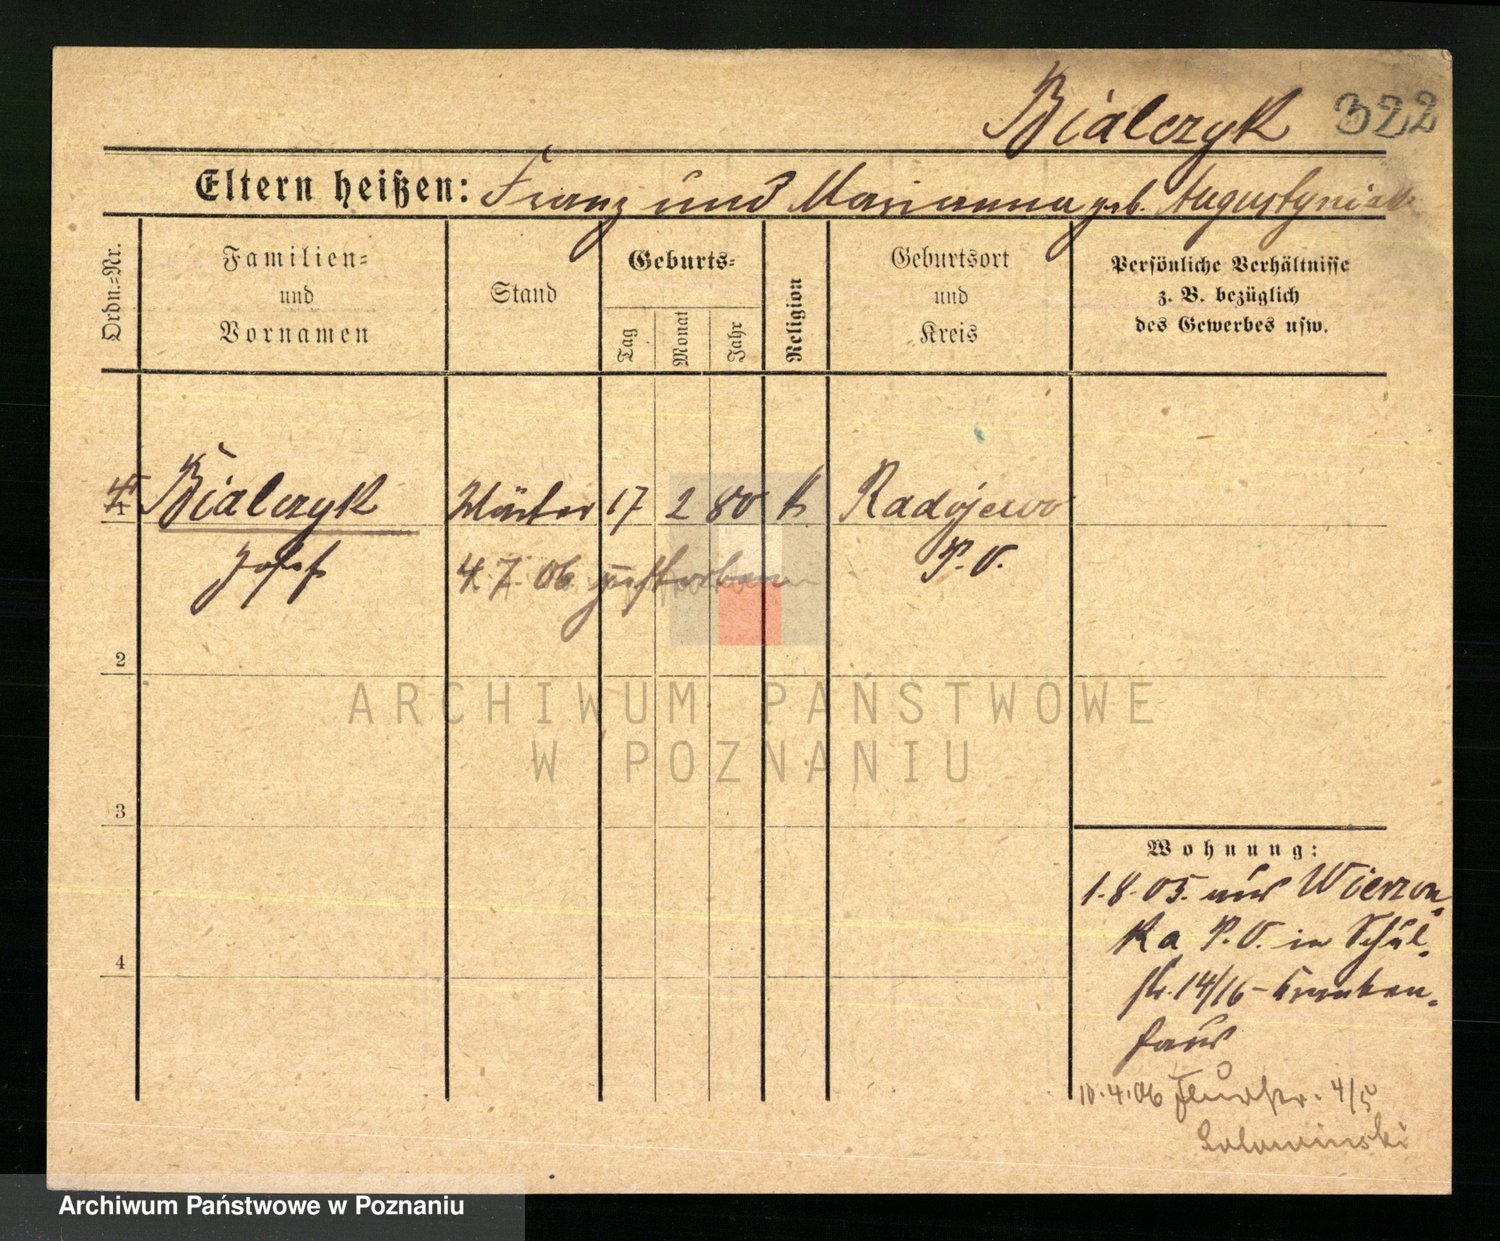 Bialczyk 322
Eltern heißen: Franz und Marianna geb. Augustyniak
Ordn.=Nr.
Familien=
und
Vornamen
Stand
Geburts=
Tag
Monat
Jahr
Religion
Geburtsort
und
Kreis
Persönliche Verhältnisse
z. B. bezüglich
des Gewerbes usw.
1 Bialczyk Wärter 17 2 80 k Radojewo
Josef 4.7.06 gestorben P. O.
2
3
4
Wohnung:
1.8.05. aus Wierzon-
ka P. O. in Schul-
str. 14/16 - Kranken-
haus
10.4.06 4/5
ARCHIWUM PAŃSTWOWE
W POZNANIU
Archiwum Państwowe w Poznaniu